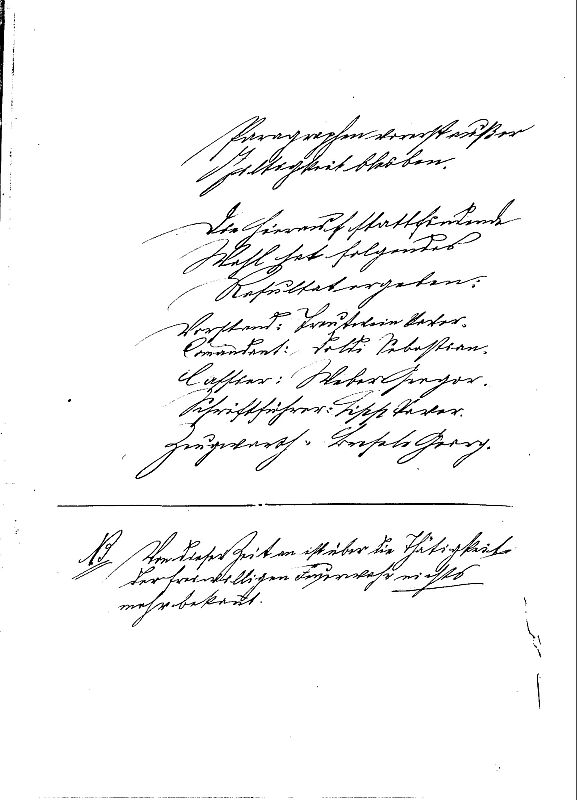 Paragraphen vorerst außer
Giltigkeit bleiben.
Die hierauf stattfindende
Wahl hat folgendes
Resultat ergeben:
Vorstand: Trautwein Xaver.
Comandant: Sebastian.
Cassier: Weber Gregor.
Schriftführer: Xaver.
Zeugwarth - Georg.
NB Von dieser Zeit an ist über die Thätigkeit
der freiwilligen Feuerwehr nichts
mehr bekannt.